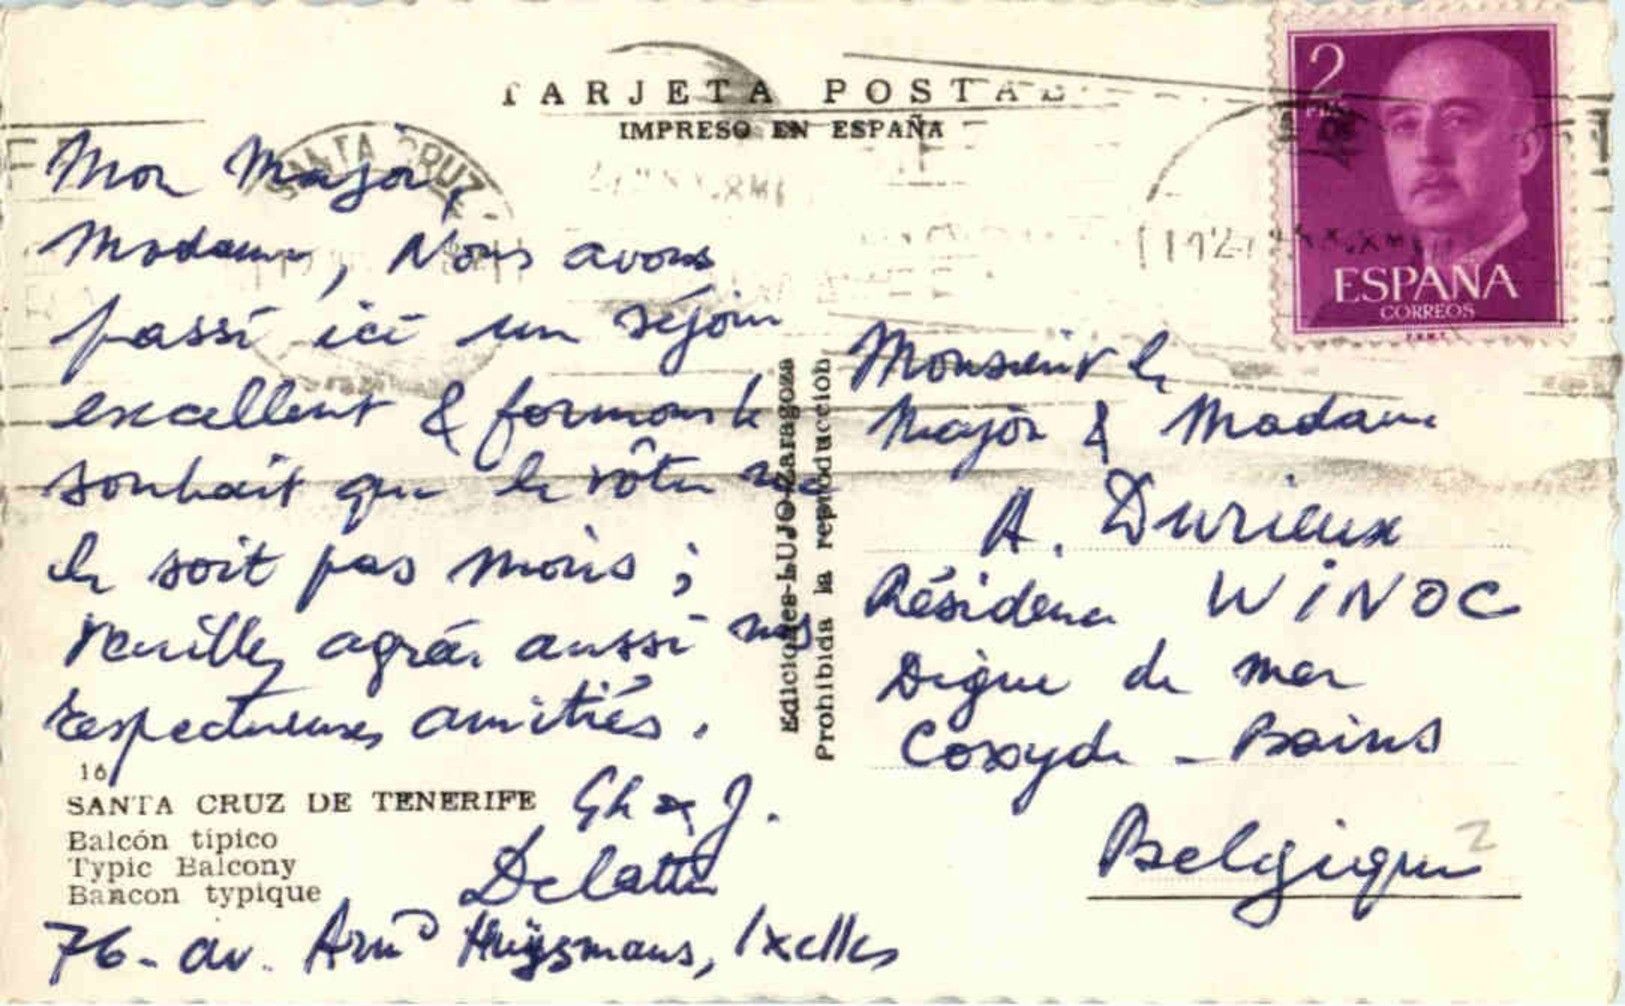 TARJETA POSTAL
IMPRESO EN ESPAÑA
SANTA CRUZ
2
PTAS
ESPAÑA
CORREOS
F.N.M.T.
Mon Major,
Madame, Nous avons
passé ici un séjour
excellent & formons le
souhait que le vôtre ne
le soit pas moins ;
Veuillez agréer aussi nos
respectueuses amitiés.
Gh & J.
Delattre
76 - av. Armd Huysmans, Ixelles
16
SANTA CRUZ DE TENERIFE
Balcón típico
Typic Balcony
Bancon typique
Ediciones-LUJO-Zaragoza
Prohibida la reproducción
Monsieur le
Major & Madame
A. Durieux
Résidence WINOC
Digue de mer
Coxyde - Bains
Belgique
2